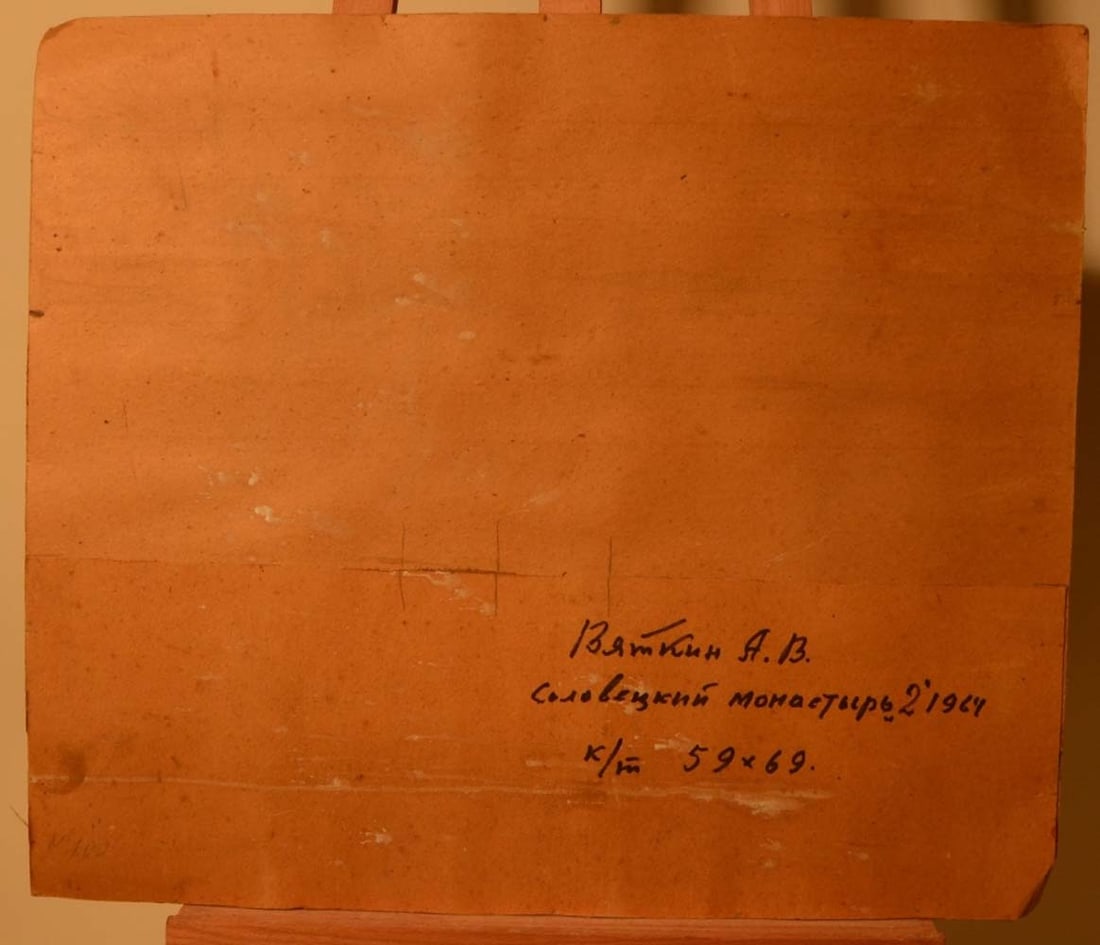 Вяткин А. В.
Соловецкий монастырь „2" 1964
к/т 59×69.